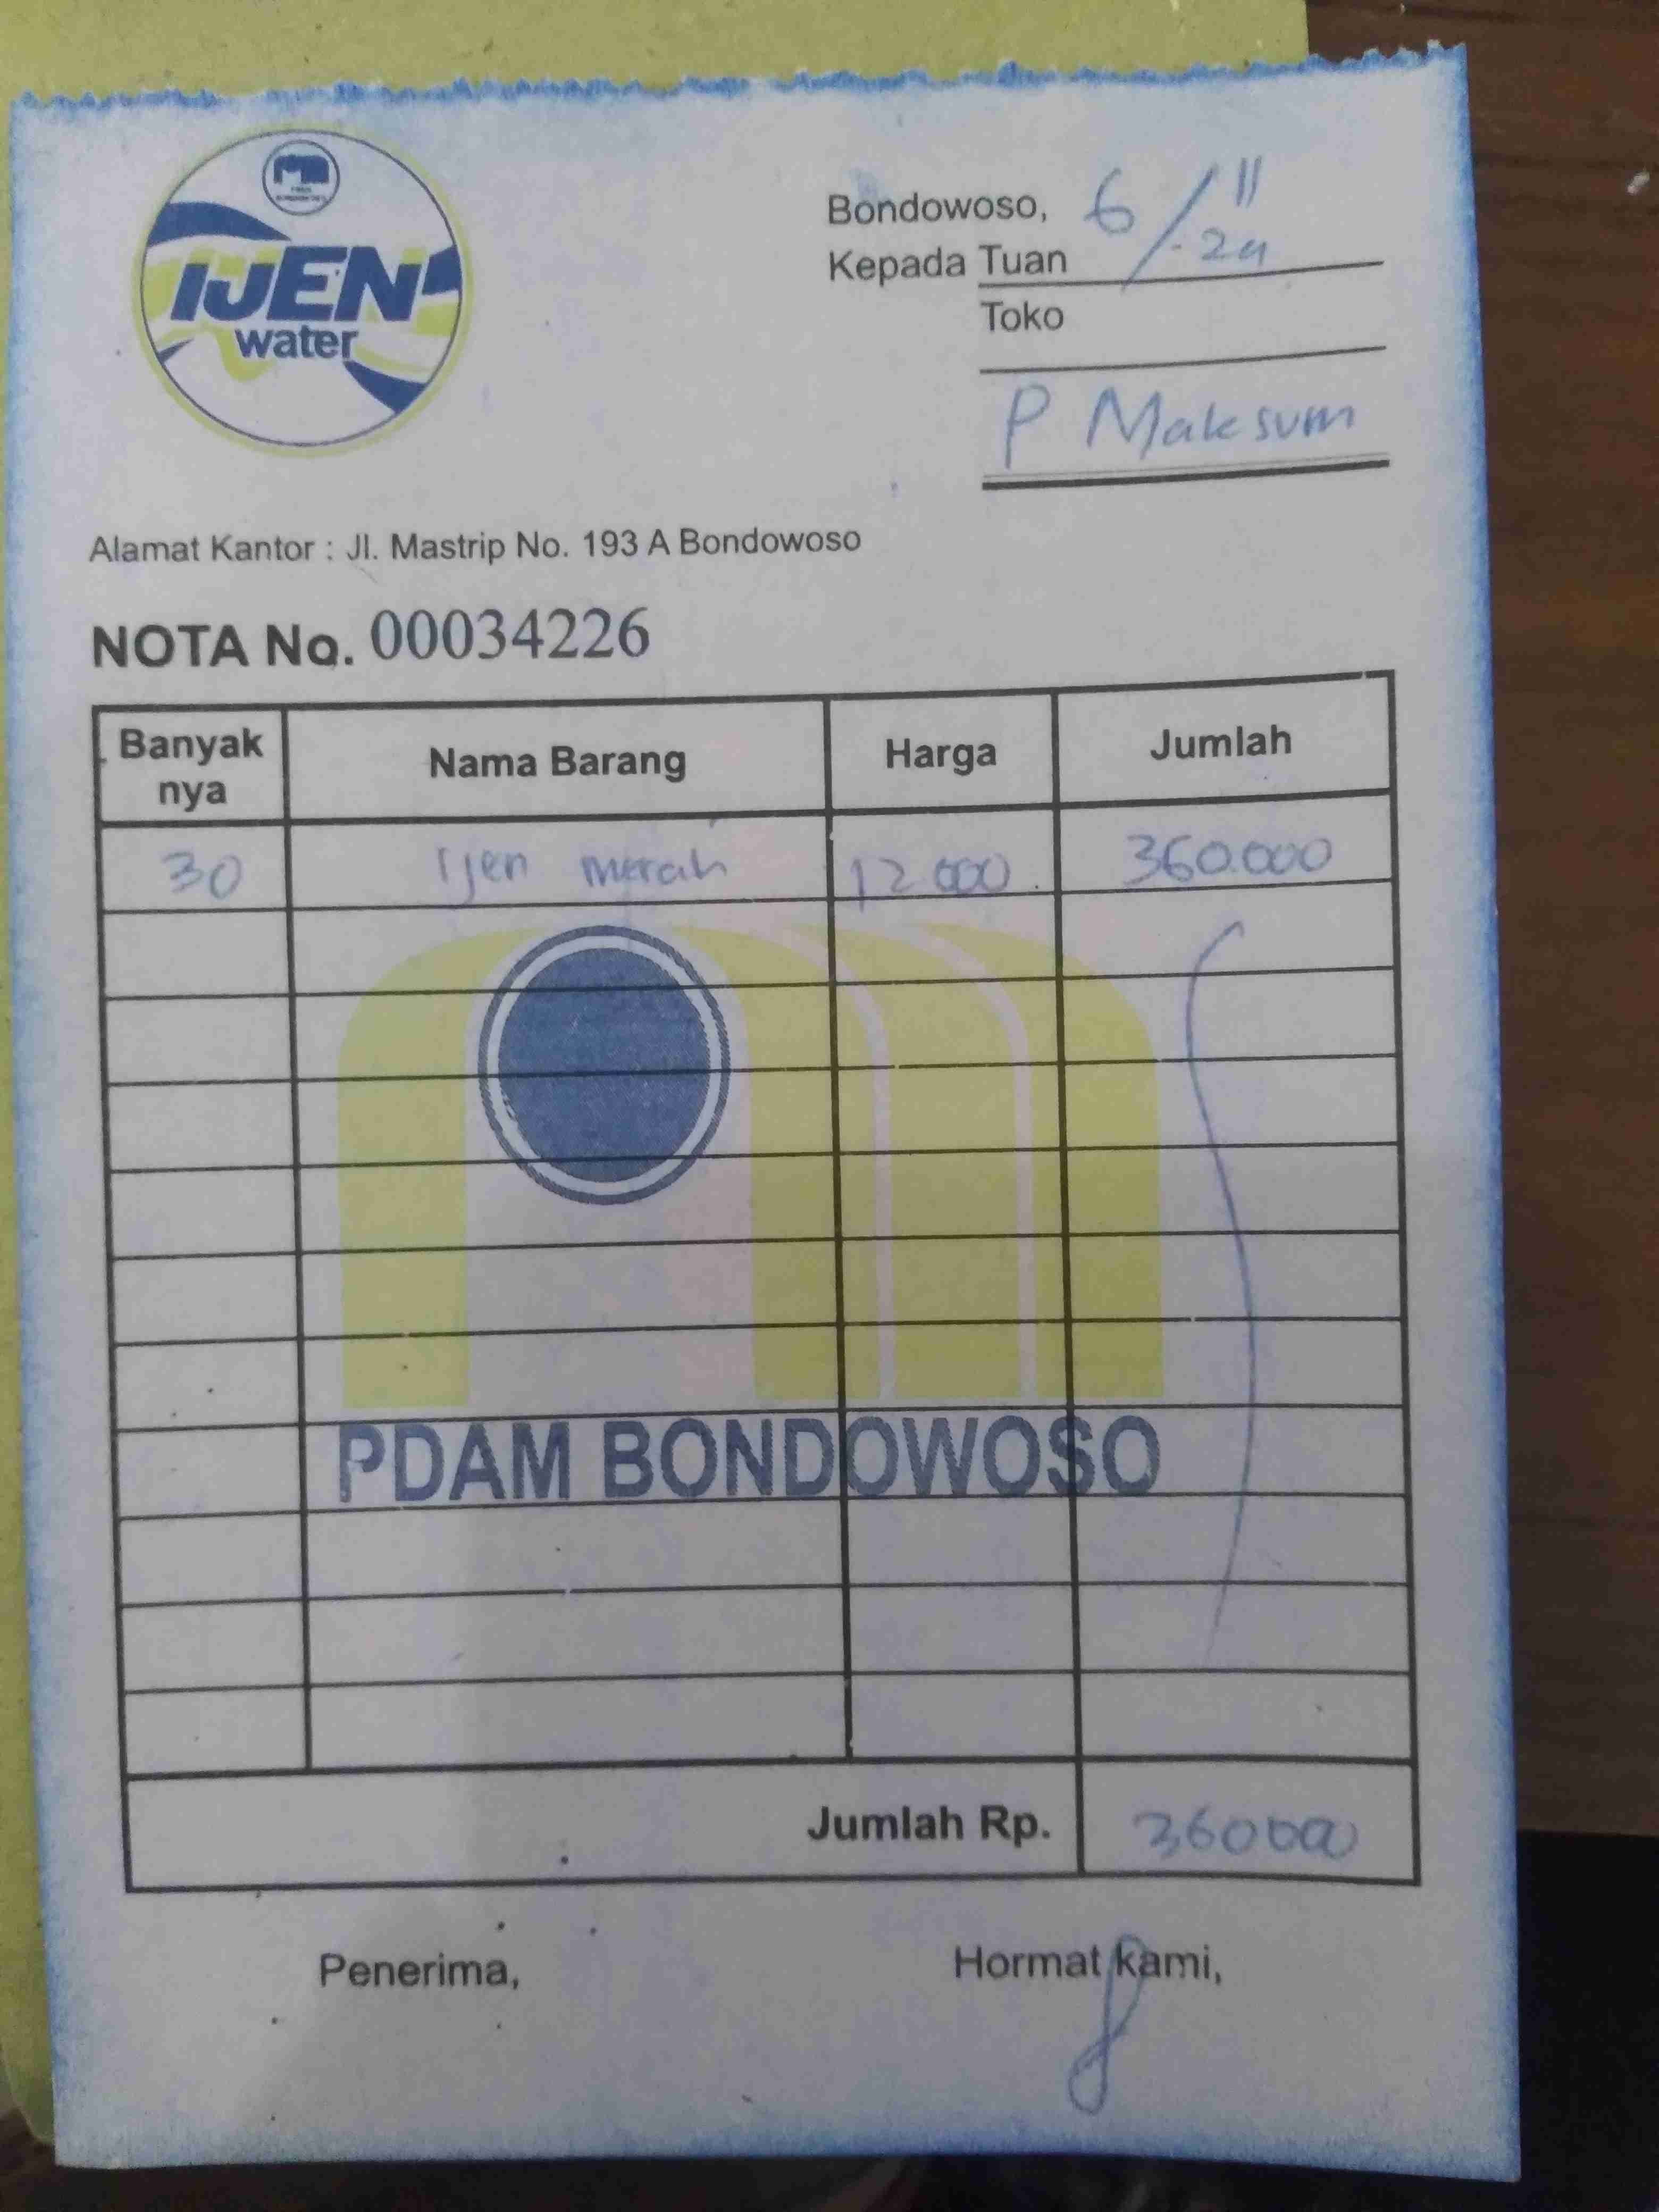 IJEN
water
Bondowoso, 6/11-24
Kepada Tuan
Toko
P Maksum
Alamat Kantor : Jl. Mastrip No. 193 A Bondowoso
NOTA No. 00034226
Banyak nya Nama Barang Harga Jumlah
30 Ijen merah 12.000 360.000
PDAM BONDOWOSO
Jumlah Rp. 360000
Penerima, Hormat kami,